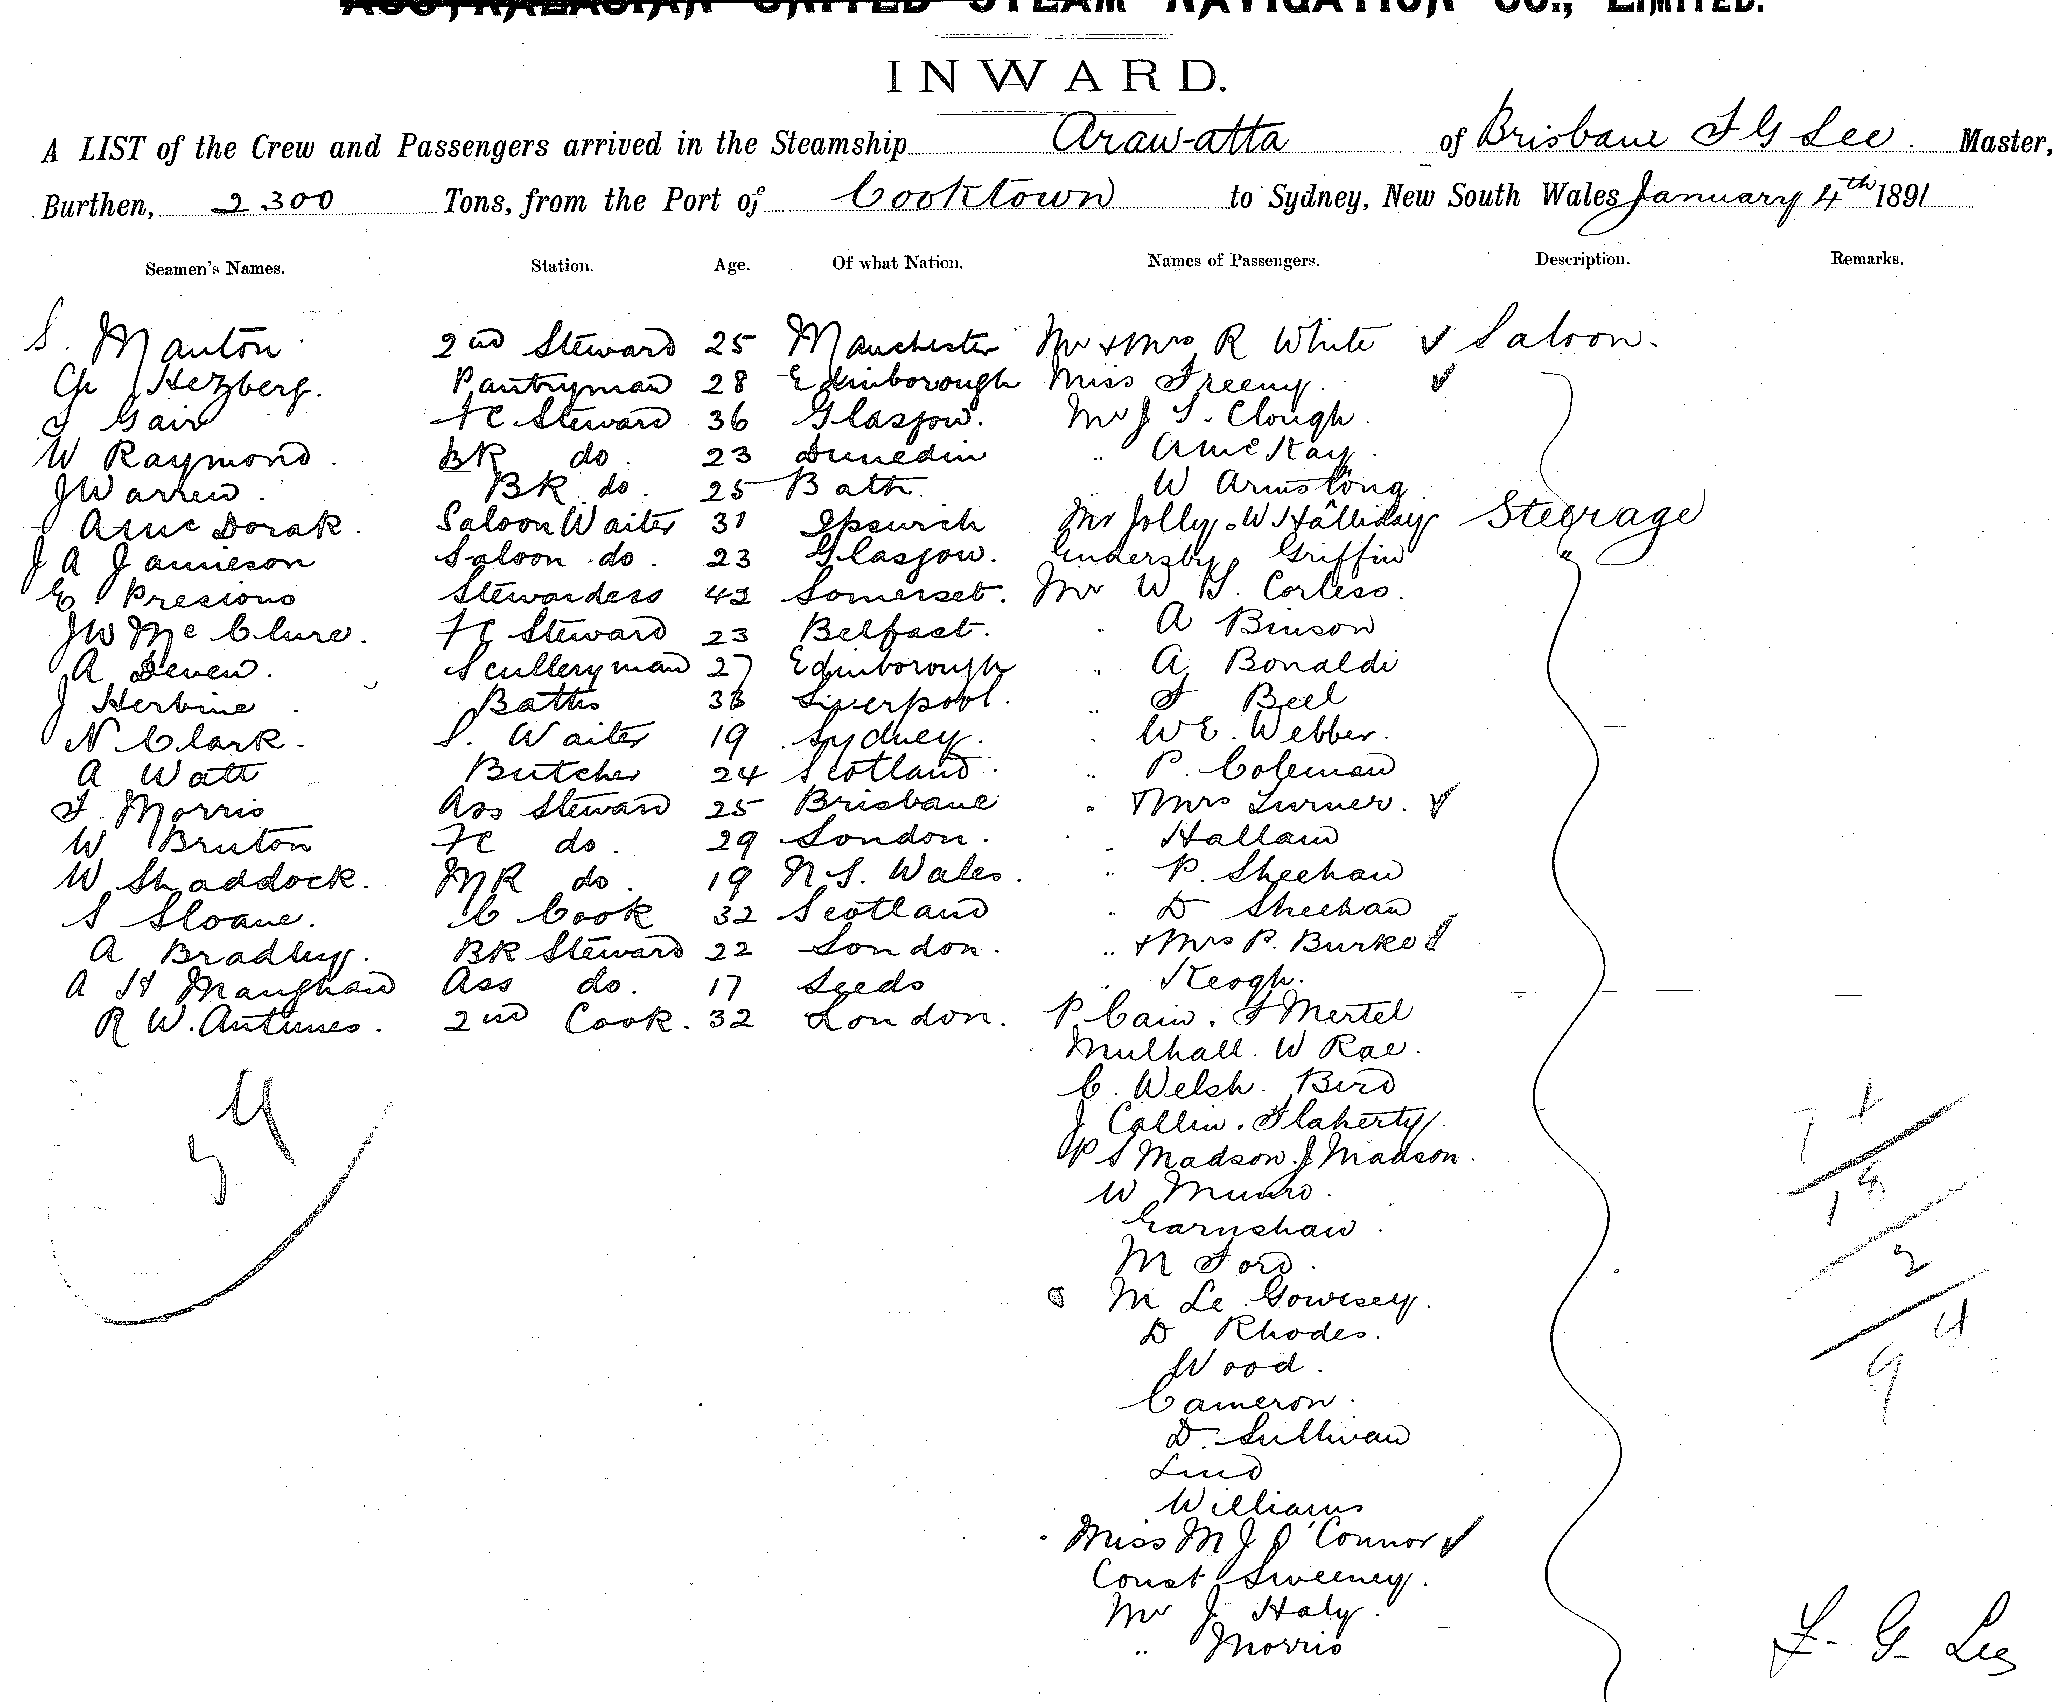 AUSTRALASIAN UNITED STEAM NAVIGATION CO., LIMITED.
INWARD.
A LIST of the Crew and Passengers arrived in the Steamship Arawatta of Brisbane F G Lee Master,
Burthen, 2300 Tons, from the Port of Cooktown to Sydney, New South Wales January 4th 1891
Seamen's Names. Station. Age. Of what Nation. Names of Passengers. Description. Remarks.
S. Manton 2nd Steward 25 Manchester Mr & Mrs R White Saloon.
Ch Hezberg. Pantryman 28 Edinborough Miss Freeny.
Gair FC Steward 36 Glasgow. Mr J S. Clough.
W Raymond BR do. 23 Dunedin " A McKay.
J Warren. BR do. 25 Bath W Armstong
Dorak. Saloon Waiter 31 Ipswich Mr Jolly. W Halliday Steerage
J A Jamieson Saloon do. 23 Glasgow. Griffin "
E. Precious Stewardess 42 Somerset. Mr W Corless.
J W McClure. FC Steward 23 Belfast. A Binson
A Deven. Sculleryman 27 Edinborough " A Bonaldi
J Herbine Baths 33 Liverpool. " F Beel
N Clark. S. Waiter 19 Sydney. W E. Webber.
A Watt Butcher 24 Scotland. " P. Coleman
F. Morris Ass Steward 25 Brisbane " & Mrs Turner.
W Bruton FC do. 29 London. Hallam
W Shaddock. MR do. 19 N. S. Wales. " P. Sheehan
S Sloane. C Cook 32 Scotland " D Sheehan
A Bradley. BR Steward 22 London. " & Mrs P. Burke
A H Manghan Ass do. 17 Leeds " Keogh.
R W. Antunes. 2nd Cook. 32 London. P Cain. F Mertel
Mulhall. W Rae.
C. Welsh. Bird
J Collin. Flaherty
P S Madson. J Madson.
W Munro.
Earnshaw.
M Ford.
M Le
D Rhodes.
Wood.
Cameron.
D. Sullivan
Lind
Williams
Miss M J O'Connor
Const Sweeney.
Mr J. Haly.
" Morris
F. G. Lee